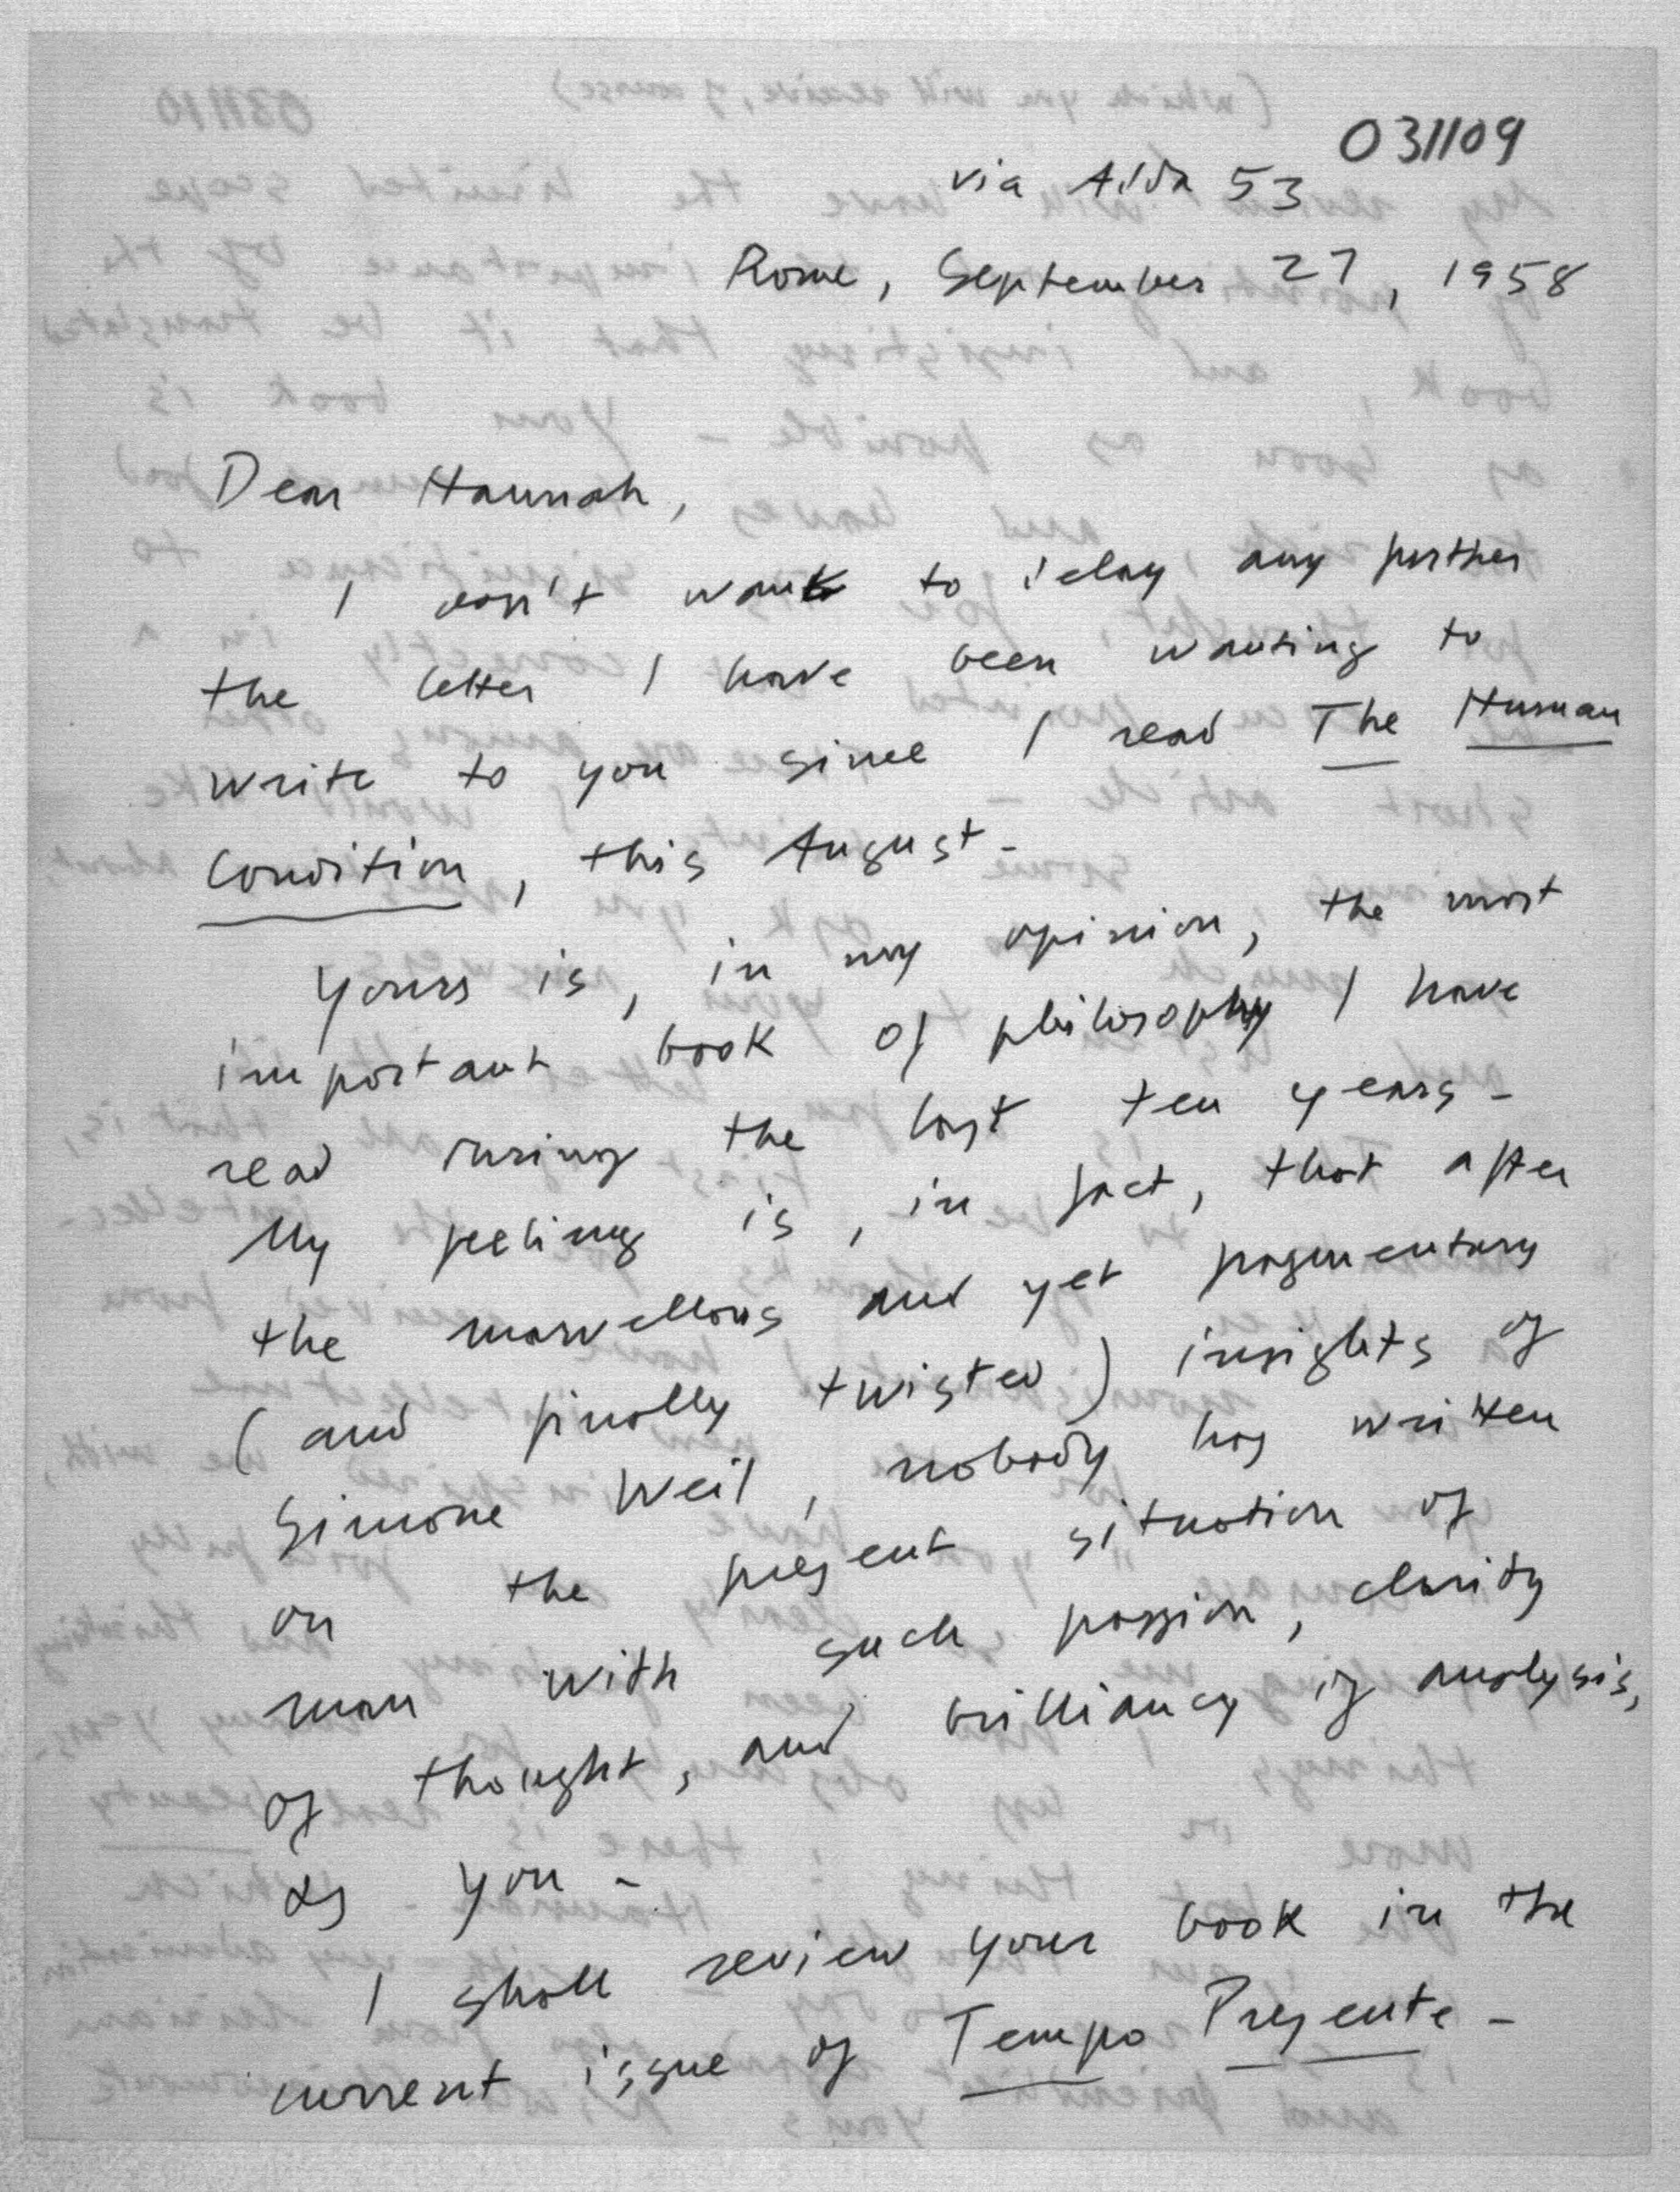 031109
via Adda 53
Rome, September 27, 1958
Dear Hannah,
I don't want to delay any further
the letter I have been wanting to
write to you since I read The Human
Condition, this August -
Yours is, in my opinion, the most
important book of philosophy I have
read during the last ten years -
My feeling is, in fact, that after
the marvellous and yet fragmentary
(and finally twisted) insights of
Simone Weil, nobody has written
on the present situation of
man with such passion, clarity
of thought, and brilliancy of analysis,
as you -
I shall review your book in the
current issue of Tempo Presente -